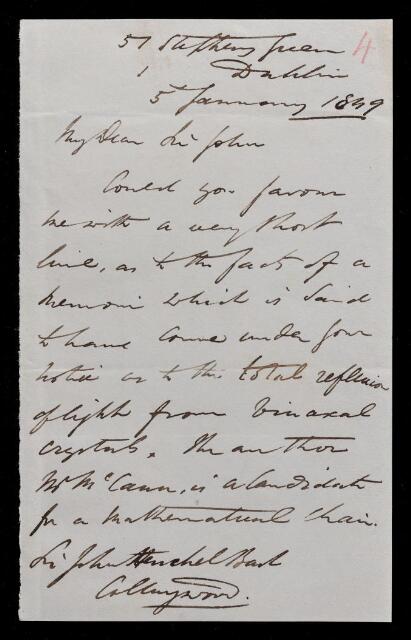 51 Stephens Green 4
Dublin
5 January 1849
My Dear Sir John
Could you favour
me with a very short
line, as to the facts of a
memoir which is said
to have come under your
notice as to the total reflexion
of light from binaxal
crystals. The author
Mr McCann, is a Candidate
for a Mathematical Chair.
Sir John Herschel Bart
Collingwood.